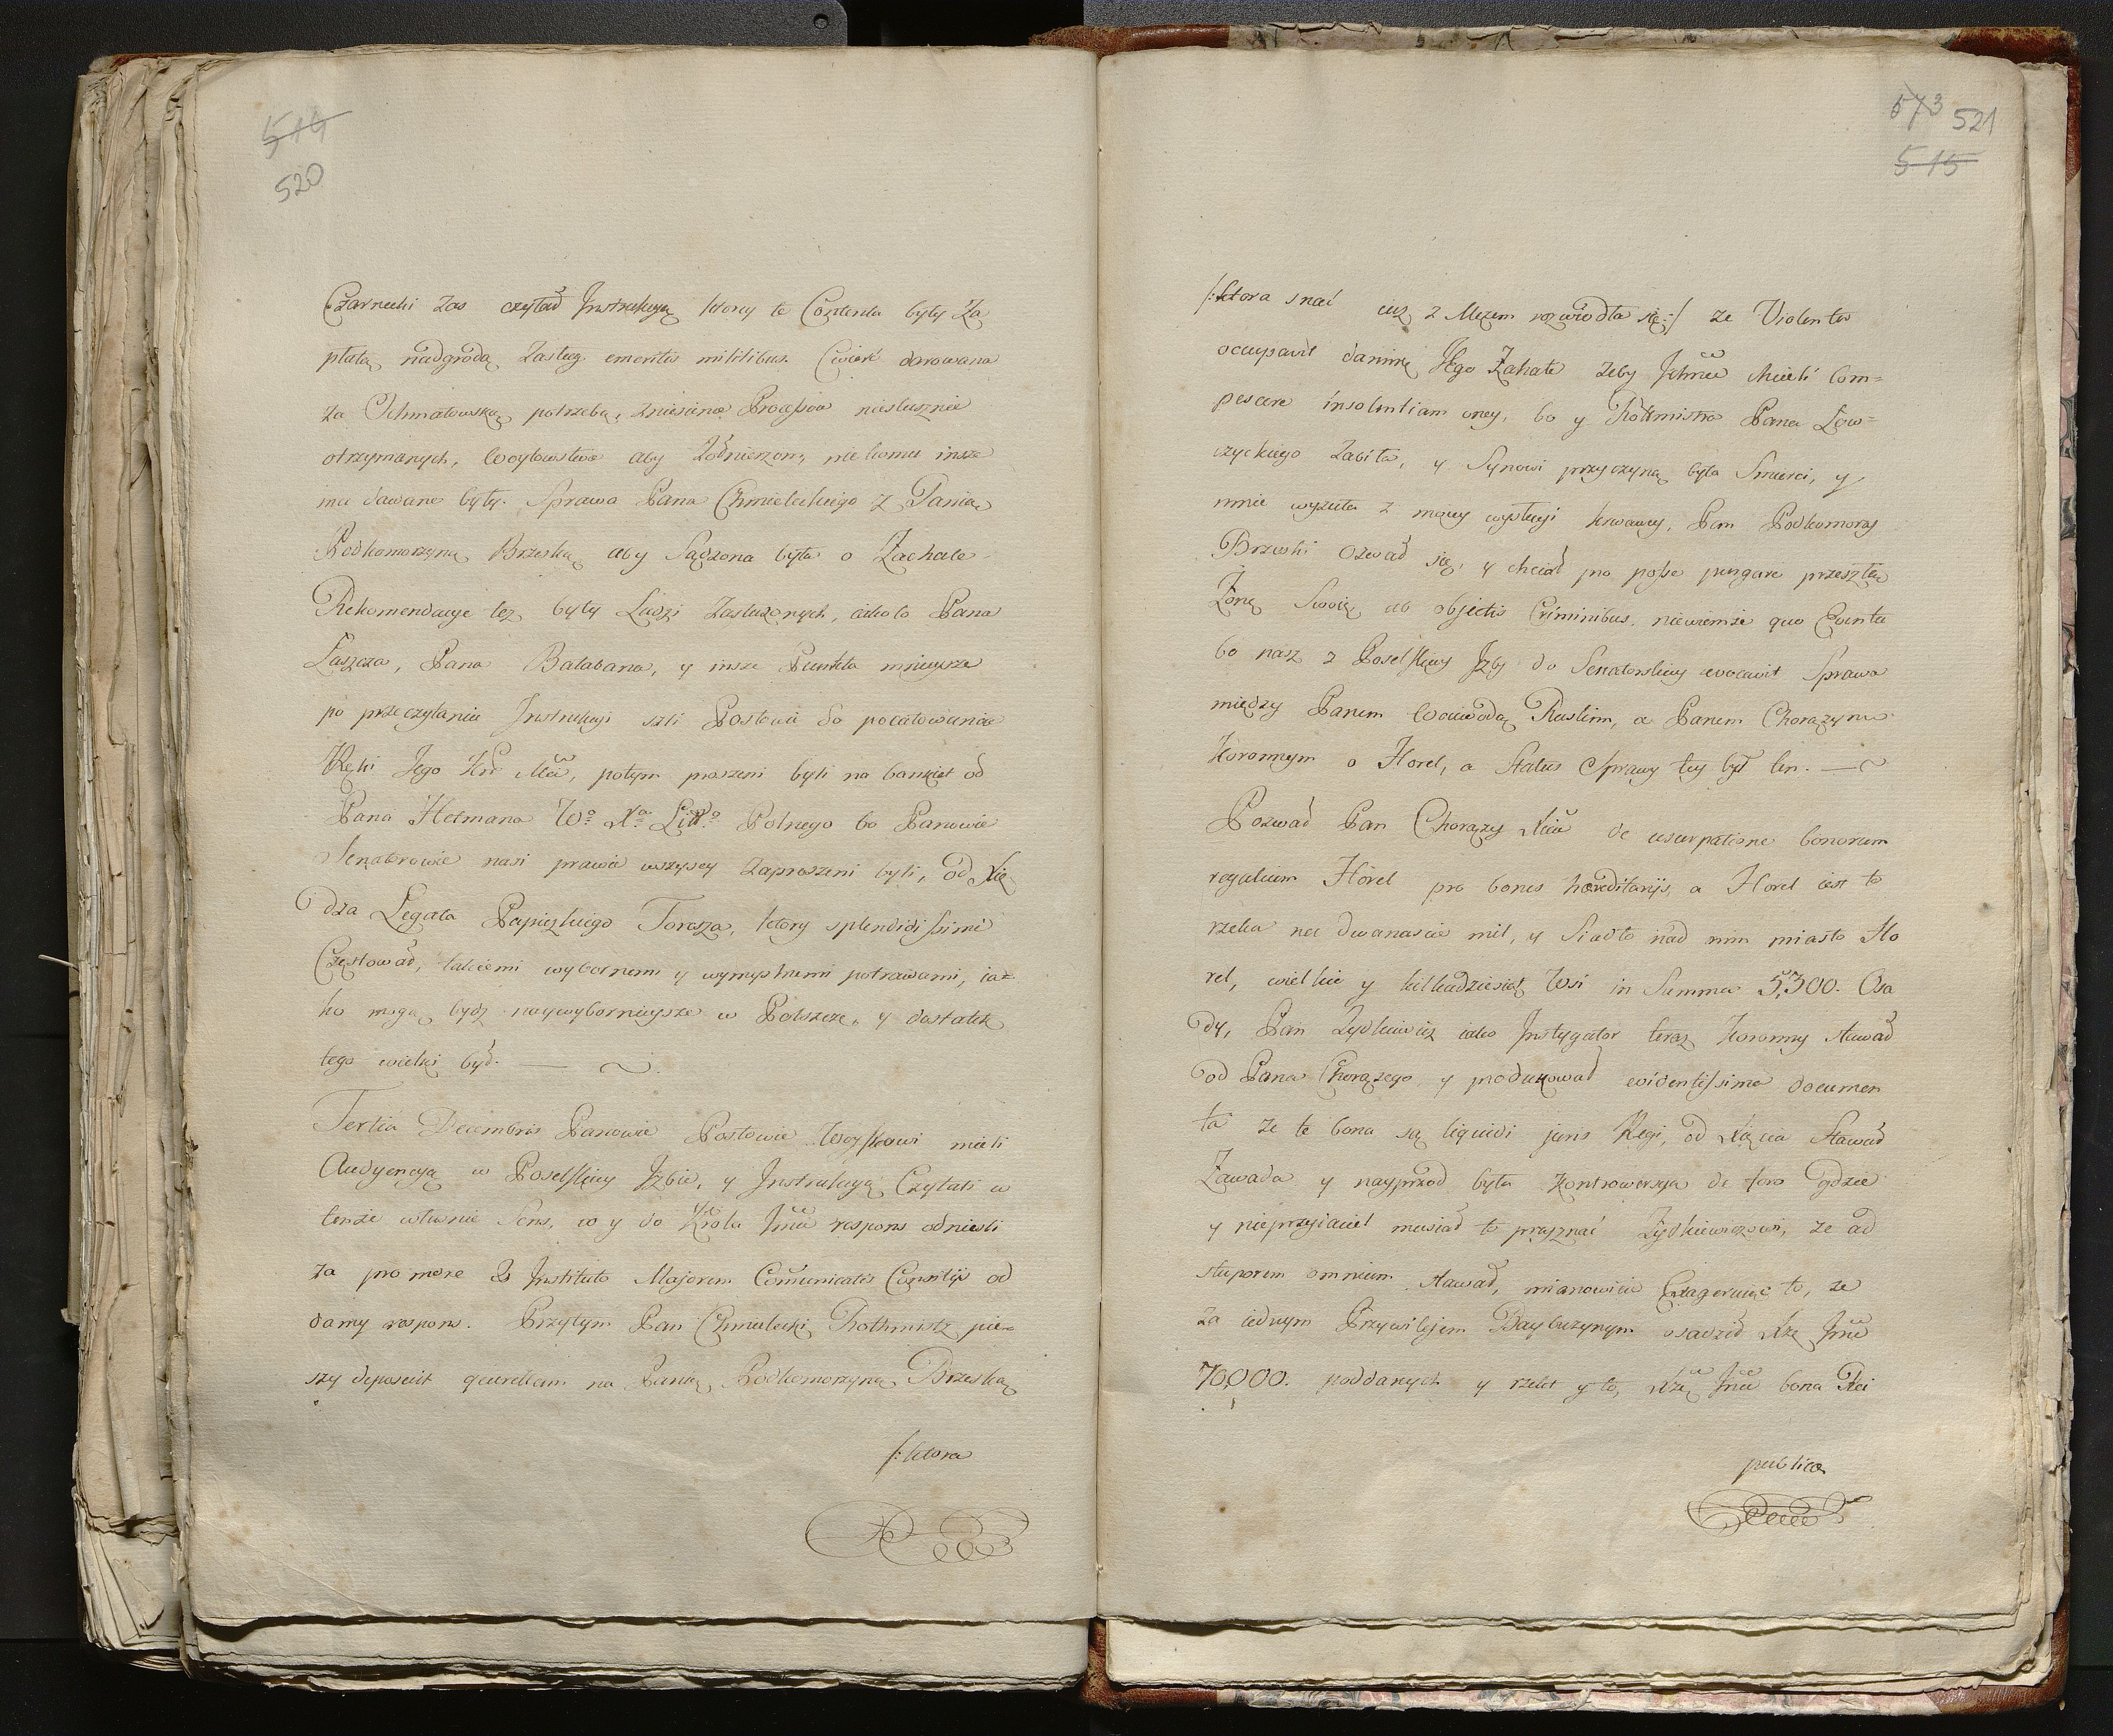 514
520
Czarnecki zas czytał Instrukcyą ktorey te Contenta były Za
płatą nadgrodą zasług emeritis militibus. Cwierć darowana
za Ochmatowską potrzebą, zniesienie Processow niesłusznie
otrzymanych, Woytowstwa aby Żołnierzom, nie komu insze
mu dawane były. Sprawa Pana Chmieleckiego z Panią
Podkomorzyną Brzeską aby Sądzona była o Zachale
Rekomendacye też były Ludzi Zasłużonych, iako to Pana
Łaszcza, Pana Bałabana, y insze Punkta mnieysze
po przeczytaniu Instrukcyi szli Posłowie do pocałowania
Ręki Jego Kr Mci, potym proszeni byli na bankiet od
Pana Hetmana Wo Xa Litto Polnego bo Panowie
Senatorowie nasi prawie wszyscy zaproszeni byli, od Xię
dza Legata Papiezkiego Toresza, ktory splendidissimè
Częstował, takiemi wybornemi y wymyslnemi potrawami, ia=
ko mogą bydz naywybornieysze w Polszcze, y dostatek
tego wielki był. — ~
Tertia Decembris Panowie Posłowie Woyskowi mieli
Audyencyą w Poselskiey Jzbie, y Instrukcyą Czytali w
tenże własnie Sens, co y do Krola Jmci respons odniesli
za pro more & Instituto Majorum Communicatis Consilijs od
damy respons. Przytym Pan Chmielecki Rothmistz pie=
szy deposuit querellam na Panią Podkomorzyną Brzeską
/:ktora
573 521
515
/:ktora snać iuz z Męzem rozwiodła się:/ ze Violenter
occupavit daninę Jego Zahale zeby Ichmci chcieli Com=
pescere insolentiam oney, bo y Rotmistra Pana Łow=
czyckiego Zabiła, y Synowi przyczyną była Smierci, y
mnie wyzuła z moiey wysługi krwawey, Pan Podkomorzy
Brzeski ozwał się, y chciał pro posse purgare przeszłą
Żonę Swoię ab objectis Criminibus. niewiemże quo Eventu
bo nasz z Poselskiey Jzby do Senatorskiey evocavit Sprawa
między Panem Woiewodą Ruskim, a Panem Chorązym
Koronnym o Horel, a Status Sprawy tey był ten. — ~
Pozwał Pan Chorązy Xcia de usurpatione bonorum
regalium Horel pro bonis hæreditarijs, a Horel iest to
rzeka na dwanascie mil, y Siadło nad nim miasto Ho
rel, wielkie y kilkadziesiąt Wsi in Summa 5,300. Osa
dy, Pan Zydkiewicz iako Instygator teraz Koronny stawał
od Pana Chorązego y produkował evidentissima documen
ta ze te bona są liquidi juris Regi, od Xiązcia Stawał
Zawada y nayprzod była Kontrowersya de foro gdzie
y nieprzyiaciel musiał to przyznać Zydkiewiczowi, ze ad
stuporem omnium Stawał, mianowicie Exageruiąc to, ze
za iednym Przywilejem Baybuzynym osadził Xże Jmć
70,000. poddanych y rzekł y to, Xżę Jmć bona Rei
publica